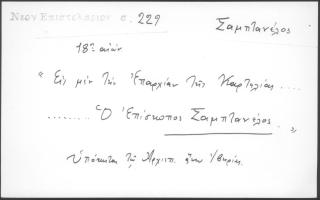 Νεον Επιστολαριον σ. 229
Σαμπτανέλος
18ος αιών
"Εις μεν την Επαρχίαν της Καρταλίας ....
........ Ὁ Ἐπίσκοπος Σαμπτανέλος. "
Ὑπόκειται τῷ Ἀρχιεπ. ἄνω Ἰβηρίας.